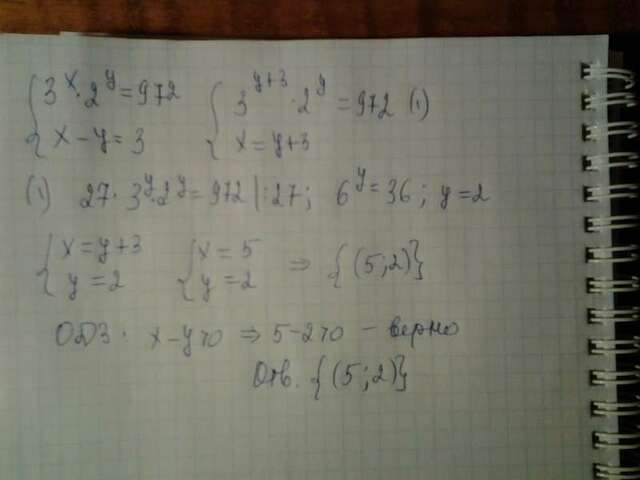 { 3^x · 2^y = 972 { 3^(y+3) · 2^y = 972 (1)
{ x - y = 3 { x = y+3
(1) 27 · 3^y · 2^y = 972 | :27 ; 6^y = 36 ; y = 2
{ x = y+3 { x = 5 ⇒ {(5;2)}
{ y = 2 { y = 2
ОДЗ. x-y>0 ⇒ 5-2>0 - верно
Отв. {(5;2)}